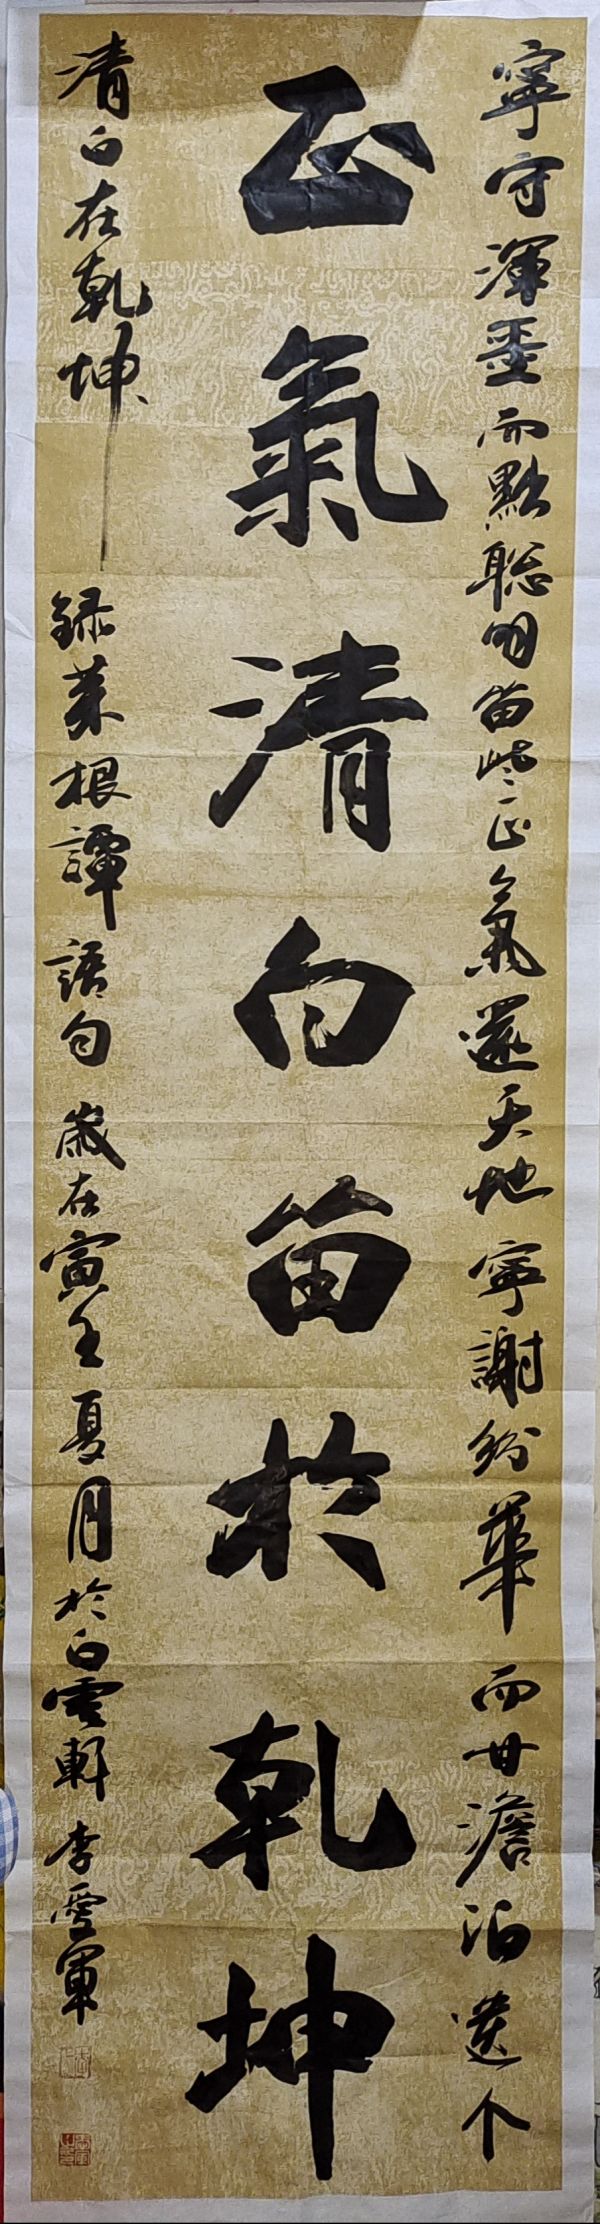 寧守渾噩而黜聰明留些正氣還天地寧謝紛華而甘澹泊遺个
正氣清白留於乾坤
清白在乾坤 録菜根譚語句 歲在寅壬夏月於白雲軒 李雪軍